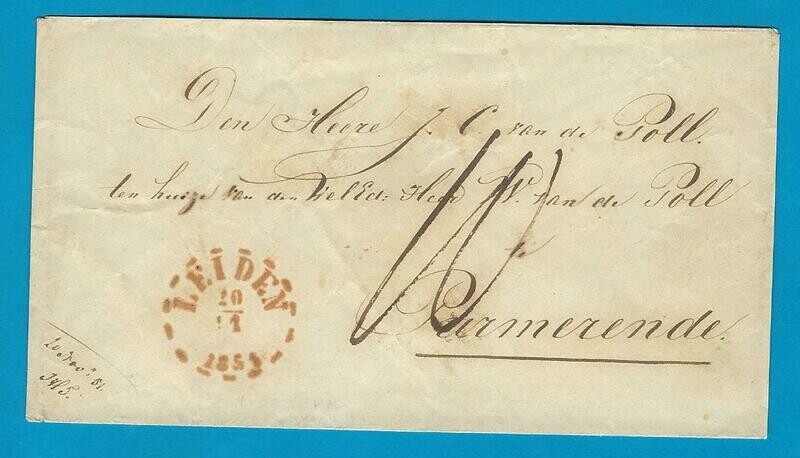 Den Heere J. C. van de Poll.
ten huize van den WelEd: Heer W. van de Poll
te
Purmerende.
10
LEIDEN
20
11
1851
20 Nov: 51.